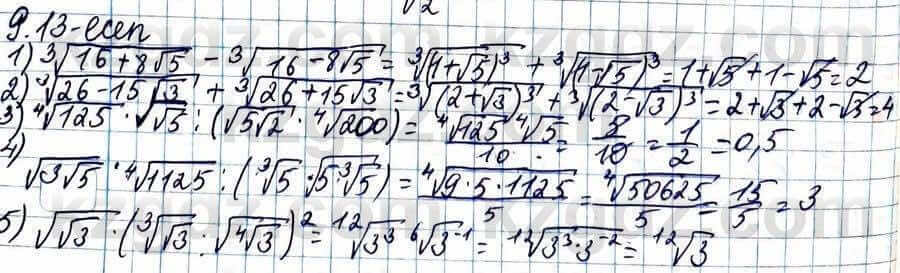 √2
9.13-есеп
1) ∛(16+8√5) - ∛(16-8√5) = ∛(1+√5)³ + ∛(1-√5)³ = 1+√5+1-√5=2
2) ∛(26-15√3) + ∛(26+15√3) = ∛(2+√3)³ + ∛(2-√3)³ = 2+√3+2-√3=4
3) ∜125 · √√5 : (√(5√2) · ∜200) = (∜125 ∜5)/10 = 5/10 = 1/2 = 0,5
4)
√(3√5) · ∜1125 : (∛5 · √5·∛5) = ∜(9·5·1125)/5 = ∜50625/5 = 15/5 = 3
5) √√3 · (∛√3 : √∜3)² = ¹²√3³ ⁶√3⁻¹ = ¹²√(3³·3⁻²) = ¹²√3